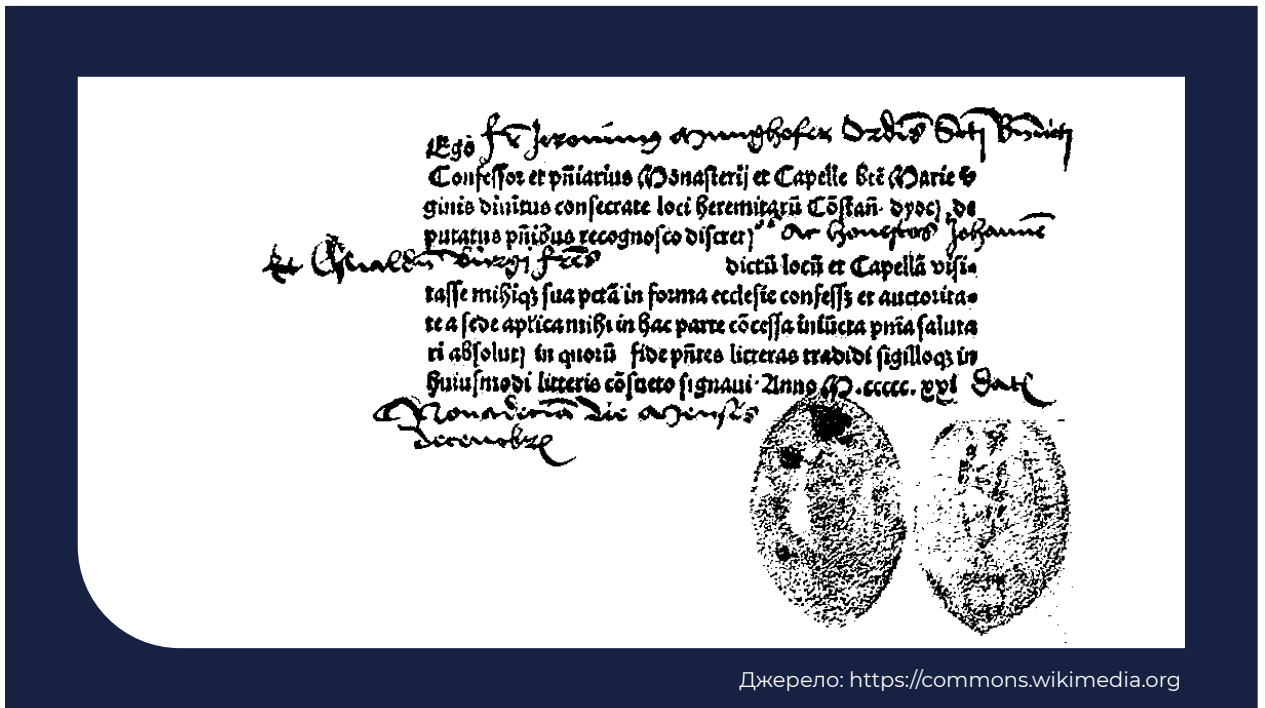 Ego fr̄ Jeronimus Munghofer Ordīs Scti Bn̄dicti
Confessor et pn̄iarius Monasterij et Capelle btē Marie v
ginis diuitus consecrate loci heremitarū Cōstañ. dyoc) de
putatus pn̄ibus recognosco discret) Ac honestos Johanne
Et Oswaldū Bürgi fres
dictū locū et Capellā visi-
tasse mihiqꝫ sua pctā in forma ecclesie confessꝫ et auctorita-
te a sede aplica mihi in hac parte cōcessa iniūcta pnīa saluta
ri absolut) in quorū fide pn̄tes litteras tradidi sigilloqꝫ in
huiusmodi litteris cōsueto signaui. Anno M.ccccc. xxi Dat
Nona die Mensis
decembre
Джерело: https://commons.wikimedia.org